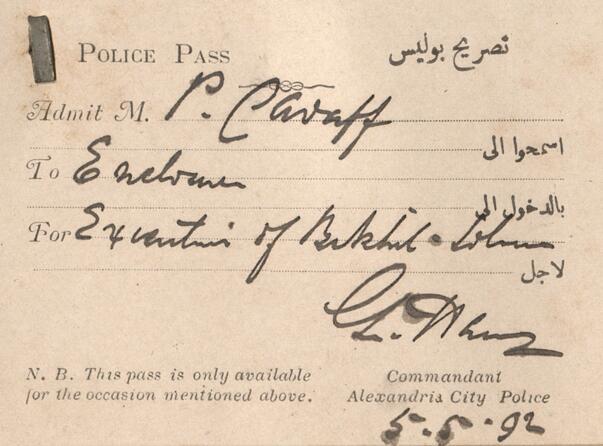 POLICE PASS تصريح بوليس
Admit M. P. Cavaffy
اسمحوا الى
To Enclosure
بالدخول الى
For Execution of
لاجل
N. B. This pass is only available Commandant
for the occasion mentioned above. Alexandria City Police
5.5.92